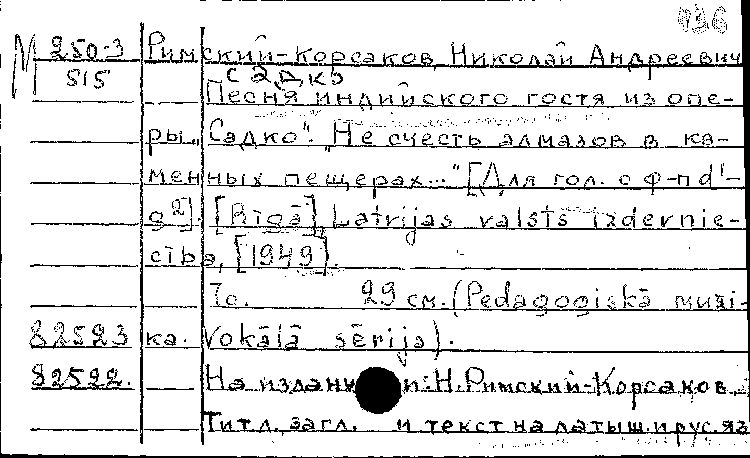 936
М 250-3 Римский-Корсаков, Николай Андреевич
515 Садко
Песня индийского гостя из опе-
ры „Садко". „Не счесть алмазов в ка-
менных пещерах..." [Для гол. с ф-п d¹-
g²]. [Rīgā], Latvijas valsts izdevnie-
cība, [1949].
7с. 29 см. (Pedagogiskā muzi-
82523 ka. Vokālā sērija).
82522. На издани и: Н. Римский-Корсаков.
Титл. загл. и текст на латыш. и рус. яз